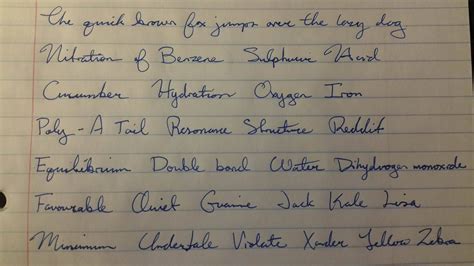 The quick brown fox jumps over the lazy dog
Nitration of Benzene Sulphuric Acid
Cucumber Hydration Oxygen Iron
Poly-A Tail Resonance Structure Reddit
Equilibrium Double bond Water Dihydrogen monoxide
Favourable Quiet Guanine Jack Kale Lisa
Minimum Undertale Violate Xander Yellow Zebra